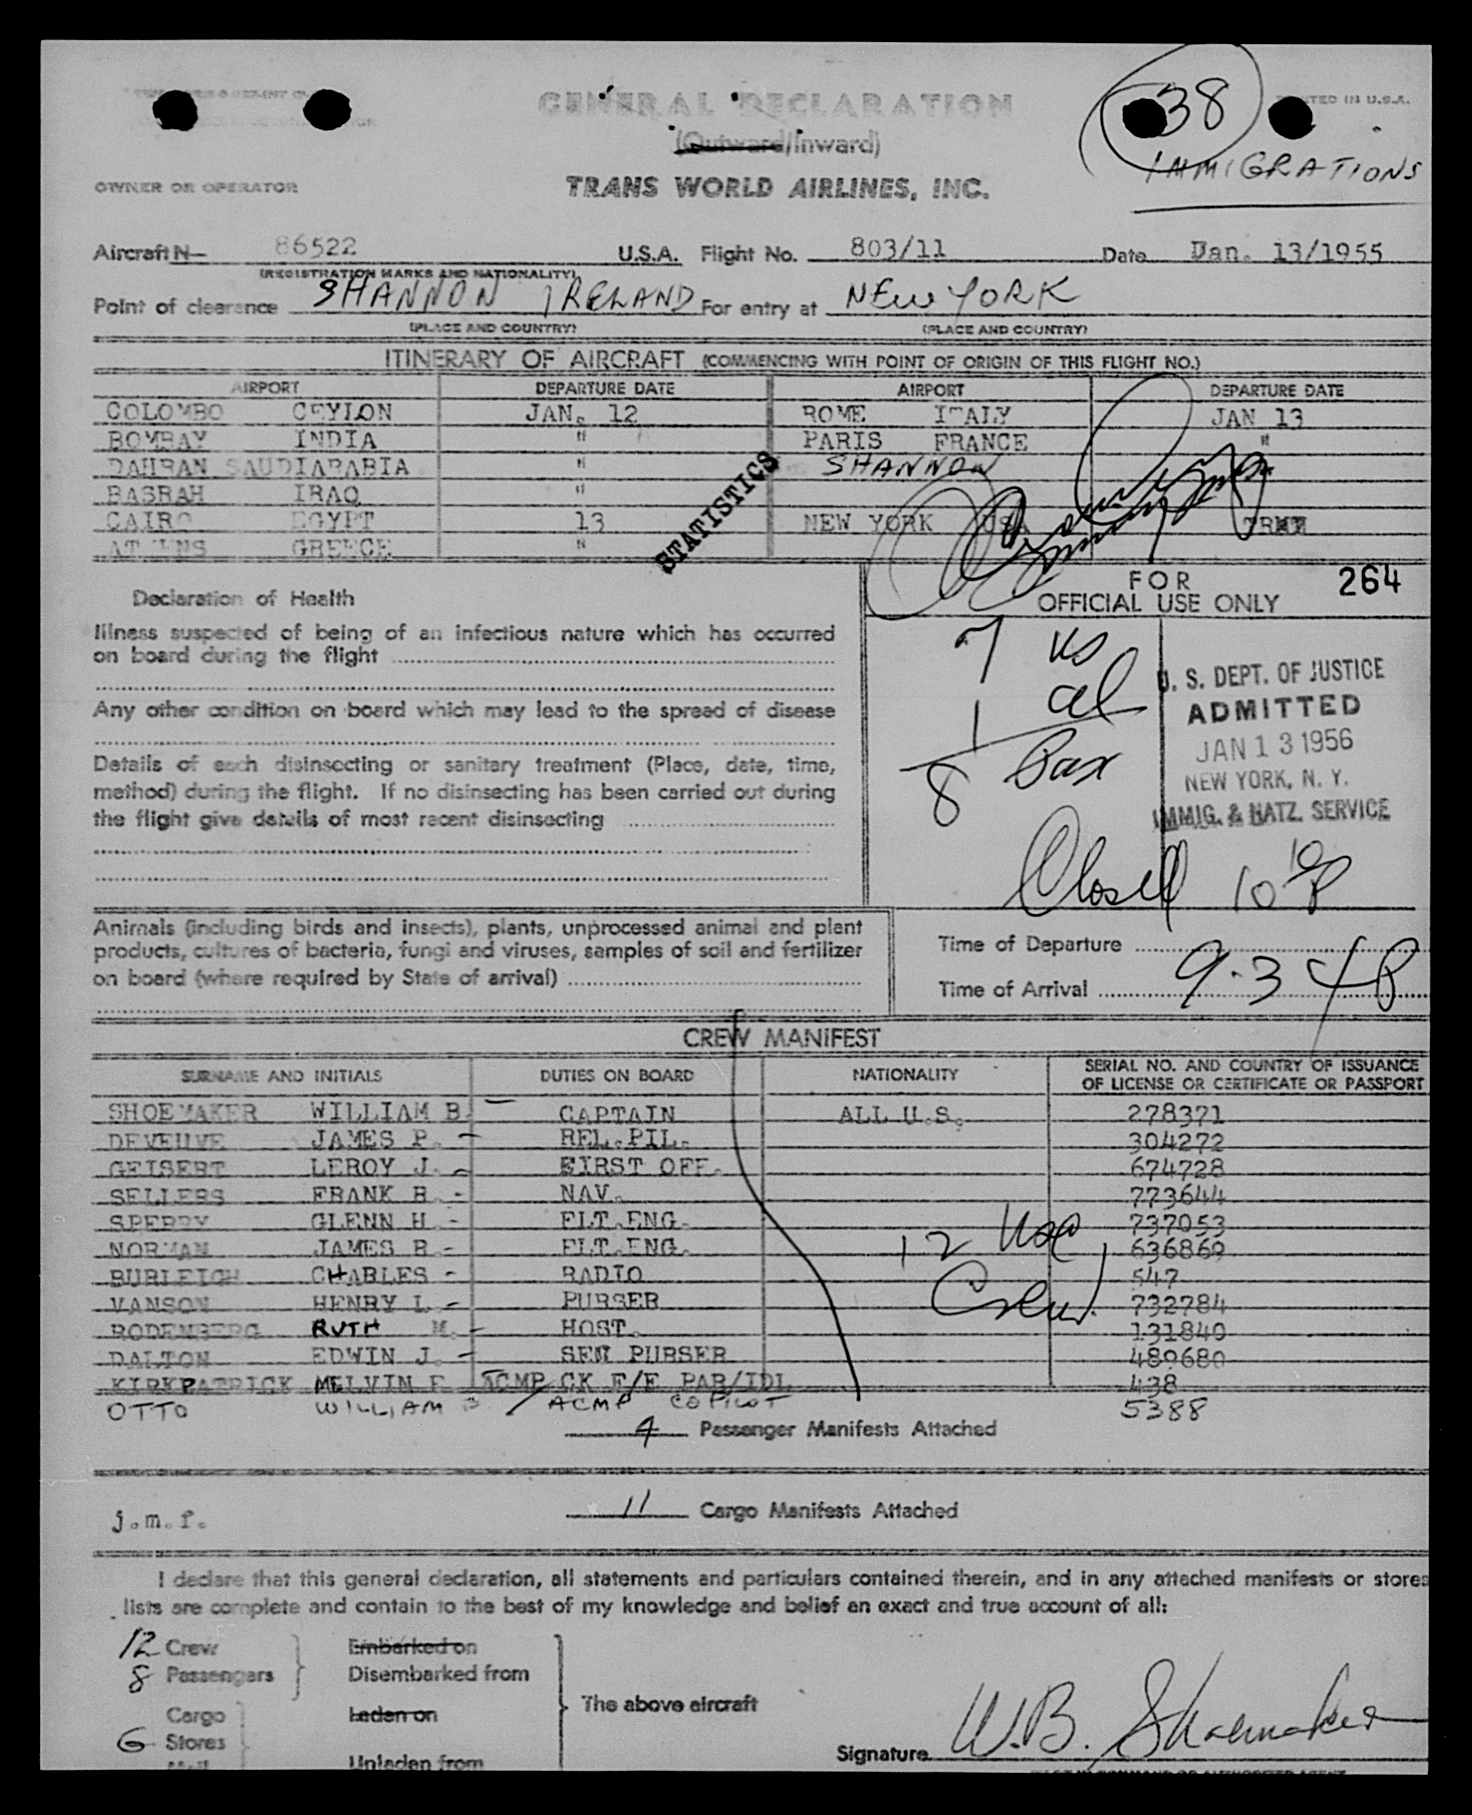 GENERAL DECLARATION
(Outward/Inward)
38
PRINTED IN U.S.A.
IMMIGRATIONS
OWNER OR OPERATOR
TRANS WORLD AIRLINES, INC.
Aircraft N— 86522 U.S.A. Flight No. 803/11 Date Dan. 13/1955
(REGISTRATION MARKS AND NATIONALITY)
Point of clearance SHANNON IRELAND For entry at NEW YORK
(PLACE AND COUNTRY) (PLACE AND COUNTRY)
ITINERARY OF AIRCRAFT (COMMENCING WITH POINT OF ORIGIN OF THIS FLIGHT NO.)
AIRPORT DEPARTURE DATE AIRPORT DEPARTURE DATE
COLOMBO CEYLON JAN. 12 ROME ITALY JAN 13
BOMBAY INDIA " PARIS FRANCE "
DAHRAN SAUDIARABIA " SHANNON
BASRAH IRAQ "
CAIRO EGYPT 13 NEW YORK USA
ATHENS GREECE "
STATISTICS
FOR
OFFICIAL USE ONLY 264
Declaration of Health
Illness suspected of being of an infectious nature which has occurred
on board during the flight
Any other condition on board which may lead to the spread of disease
Details of each disinsecting or sanitary treatment (Place, date, time,
method) during the flight. If no disinsecting has been carried out during
the flight give details of most recent disinsecting
7 us
1 al
8 Pax
U. S. DEPT. OF JUSTICE
ADMITTED
JAN 13 1956
NEW YORK, N. Y.
IMMIG. & NATZ. SERVICE
Closed 10 10P
Animals (including birds and insects), plants, unprocessed animal and plant
products, cultures of bacteria, fungi and viruses, samples of soil and fertilizer
on board (where required by State of arrival)
Time of Departure
Time of Arrival 9-34P
CREW MANIFEST
SURNAME AND INITIALS DUTIES ON BOARD NATIONALITY SERIAL NO. AND COUNTRY OF ISSUANCE
OF LICENSE OR CERTIFICATE OR PASSPORT
SHOEMAKER WILLIAM B. — CAPTAIN ALL U.S. 278371
DEVEUVE JAMES P. — REL.PIL. 304272
GEISERT LEROY J. - FIRST OFF. 674728
SELLERS FRANK R. - NAV. 773644
SPERRY GLENN H. - FLT.ENG. 737053
NORMAN JAMES R - FLT.ENG. 636869
BURLEIGH CHARLES - RADIO 547
VANSON HENRY L - PURSER 732784
RODENBERG RUTH M. - HOST. 131840
DALTON EDWIN J. - SEM PURSER 489680
KIRKPATRICK MELVIN F ACMP CK F/E PAR/IDL 438
OTTO WILLIAM B ACMP COPILOT 5388
12 USA
Crew
4 Passenger Manifests Attached
11 Cargo Manifests Attached
j.m.f.
I declare that this general declaration, all statements and particulars contained therein, and in any attached manifests or stores
lists are complete and contain to the best of my knowledge and belief an exact and true account of all:
12 Crew Embarked on
8 Passengers Disembarked from
Cargo Laden on
The above aircraft
6 Stores
Mail Unladen from
Signature W.B. Shoemaker